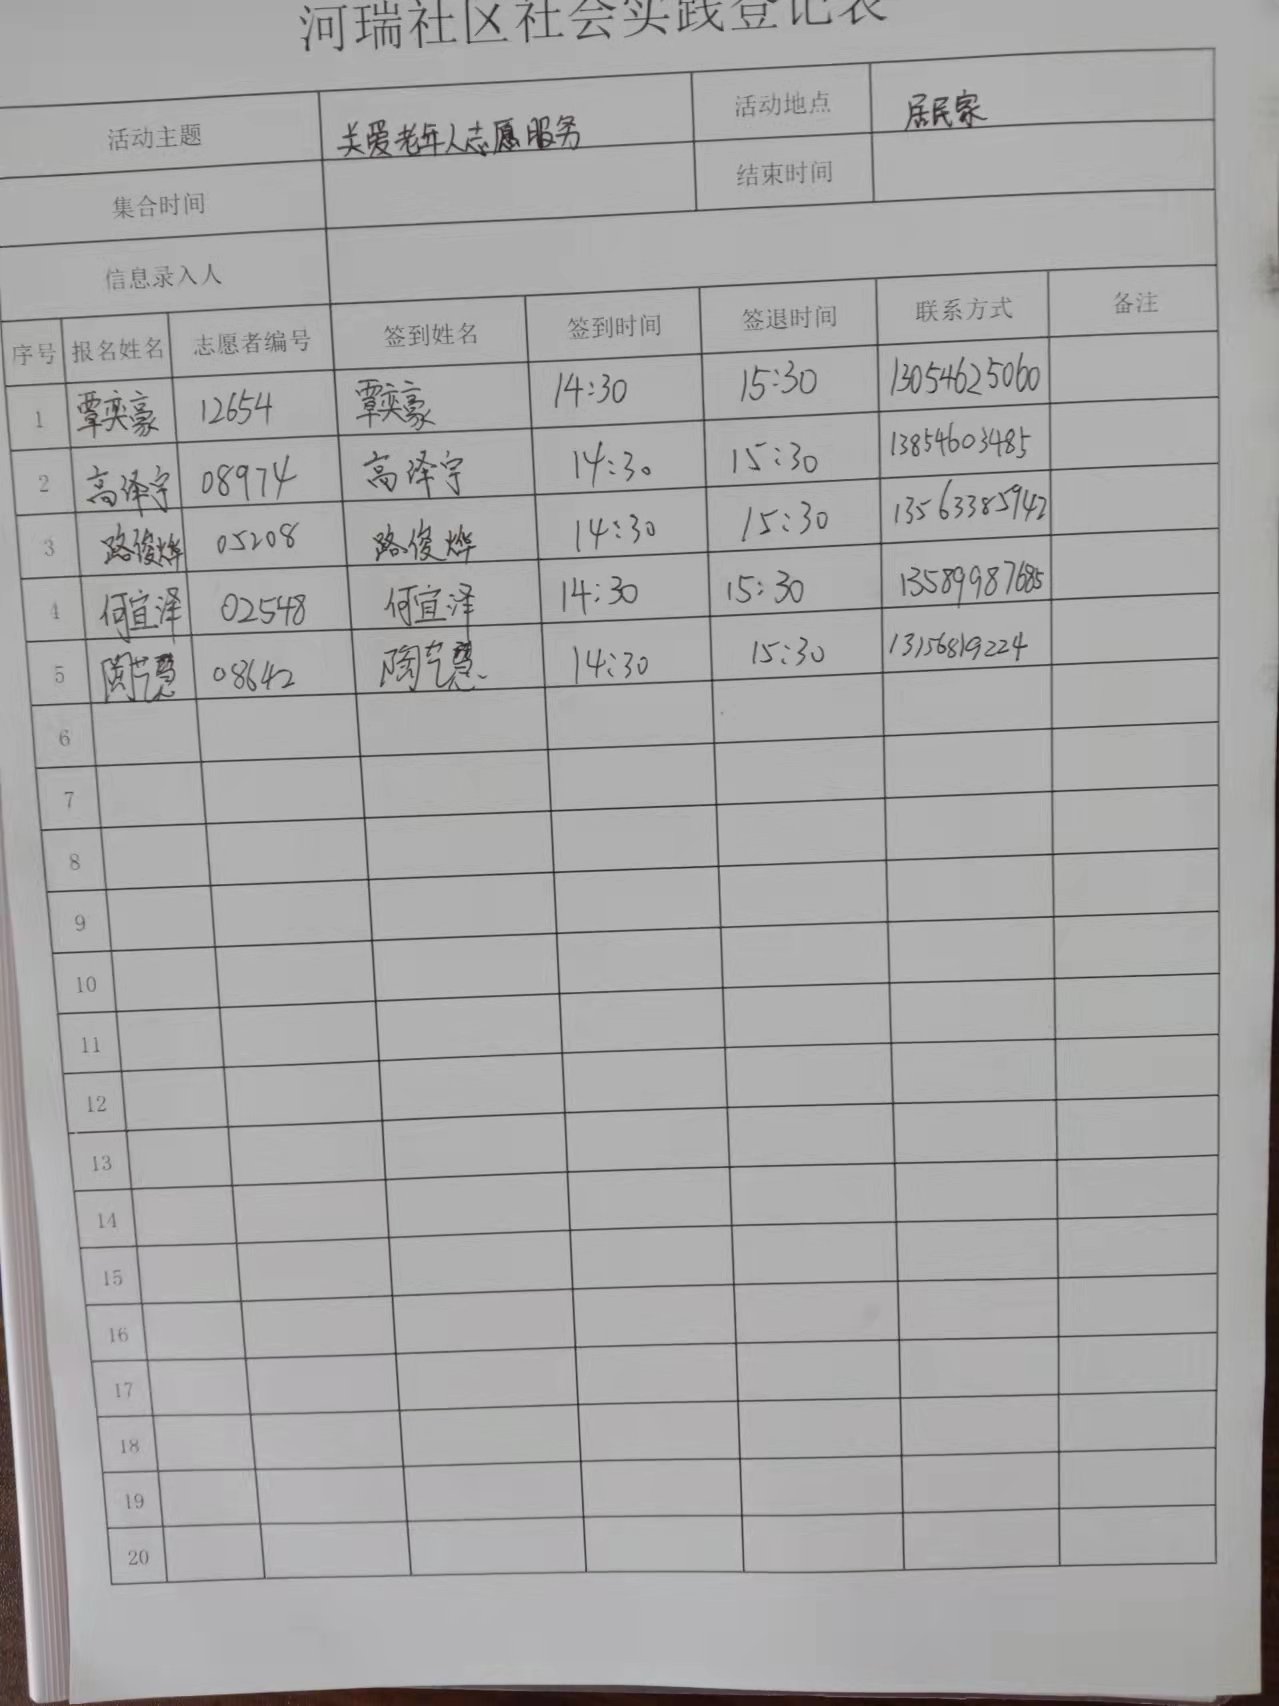 河瑞社区社会实践登记表
活动主题 关爱老年人志愿服务 活动地点 居民家
集合时间 结束时间
信息录入人
序号 报名姓名 志愿者编号 签到姓名 签到时间 签退时间 联系方式 备注
1 覃奕豪 12654 覃奕豪 14:30 15:30 13054625060
2 高泽宇 08974 高泽宇 14:30 15:30 13854603485
3 路俊烨 05208 路俊烨 14:30 15:30 13563385942
4 何宜泽 02548 何宜泽 14:30 15:30 13589987685
5 陶艺慧 08642 陶艺慧 14:30 15:30 13156819224
6
7
8
9
10
11
12
13
14
15
16
17
18
19
20